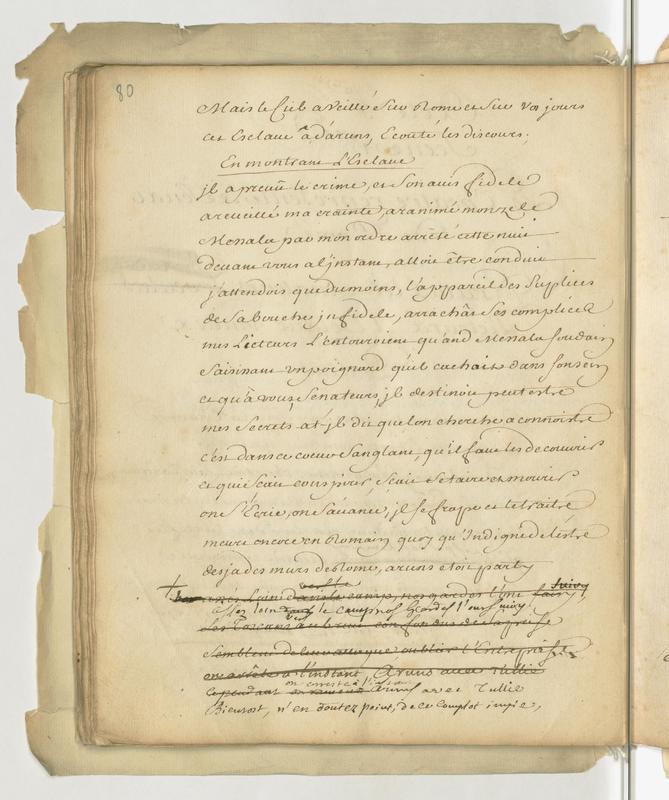 80
Mais le Ciel a veillé sur Rome et sur vos jours
cet Esclave a d'aruns, Ecouté les discours.
En montrant L'Esclave
jl a prevû le crime, et son avis fidele
a reveillé ma crainte, a ranimé mon zele
Messala par mon ordre arrêté cette nuit
devant vous a l'jnstant, alloit être conduit
j'attendois que du moins, l'appareil des suplices
de sa bouche jnfidele, arrachât ses complices
mes Licteurs l'entouroient quand Messala soudain
saisissant un poignard qu'il cachait dans son sein
et qu'à vous, Senateurs, jl destinoit peut estre
mes secrets a t-jl dit que l'on cherche a connoistre
c'est dans ce coeur sanglant qu'il faut les decouvrir
et qui scait conspirer, scait se taire et mourir
on s'Ecrie, on s'avance, jl se frape et le traitre
meurt encore en Romain quoy qu'Indigne de l'estre
desja des murs de Rome, aruns etoit party
vers le
assez loin vers le camp nos gardes l'ont suivy
Les toscans
sembloient oublier l'Entreprise
on arrête a l'instant, Aruns avec Tullie
on arreste a l'instant
Cependant Aruns avec Tullie
Bientost, n'en doutez point, de ce complot impie,